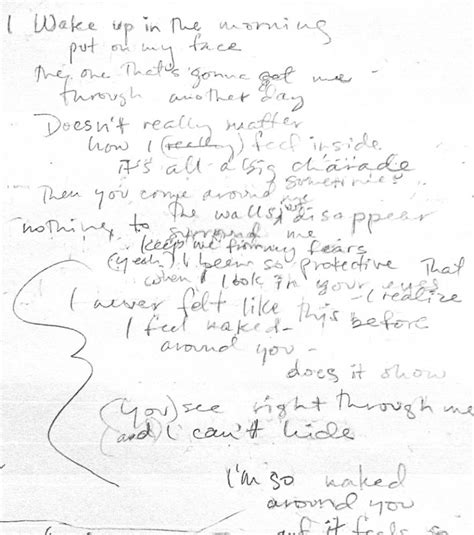 I Wake up in the morning
put on my face
The one That's gonna get me
Through another day
Doesn't really matter
how I (really) feel inside
it's all a big charade
sometimes
Then you come around
The walls just disappear
nothing to surround me
keep me from my fears
(Yeah) I been so protective That
when I look in your eyes
- I realize
I never felt like This before
I feel naked -
around you -
does it show
(You) see right through me
(and) I can't hide
I'm so naked
around you
and it feels so